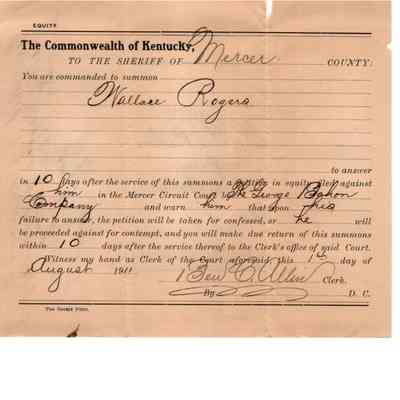 EQUITY
The Commonwealth of Kentucky,
TO THE SHERIFF OF Mercer COUNTY:
You are commanded to summon
Wallace Rogers
to answer
in 10 days after the service of this summons a petition in equity filed against
him in the Mercer Circuit Court by The George Bohon
Company and warn him that upon his
failure to answer, the petition will be taken for confessed, or he will
be proceeded against for contempt, and you will make due return of this summons
within 10 days after the service thereof to the Clerk's office of said Court.
Witness my hand as Clerk of the Court aforesaid, this 1st day of
August 1911 Ben C. Allin Clerk.
By D. C.